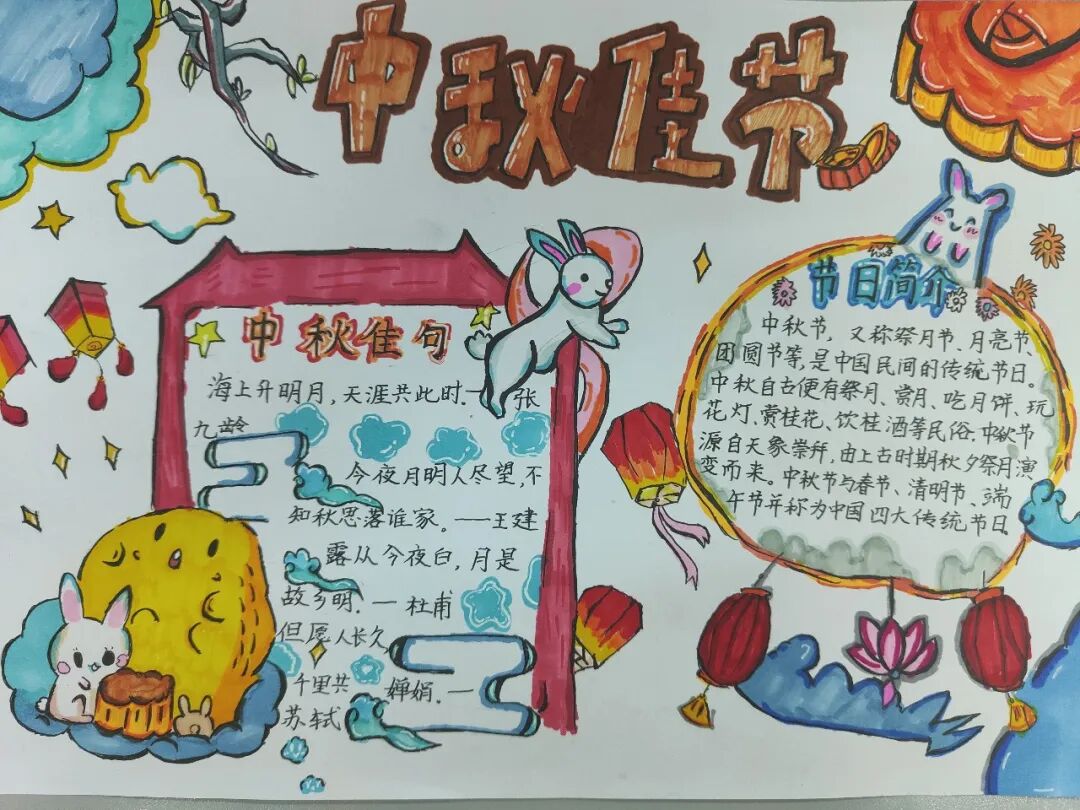 中秋佳节
中秋佳句
海上升明月,天涯共此时.一 张
九龄
今夜月明人尽望,不
知秋思落谁家。——王建
露从今夜白,月是
故乡明.一 杜甫
但愿人长久,
千里共 婵娟.一
苏轼
节日简介
中秋节,又称祭月节、月亮节、
团圆节等,是中国民间的传统节日。
中秋自古便有祭月、赏月、吃月饼、玩
花灯、赏桂花、饮桂酒等民俗.中秋节
源自天象崇拜,由上古时期秋夕祭月演
变而来。中秋节与春节、清明节、端
午节并称为中国四大传统节日.